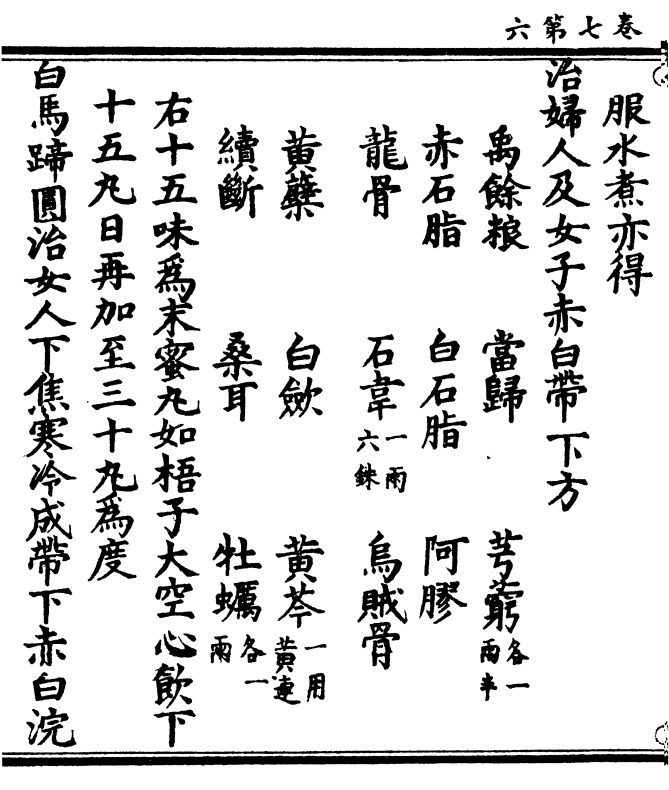 卷七第六
服水煮亦得
治婦人及女子赤白帶下方
禹餘粮 當歸 芎藭各一兩半
赤石脂 白石脂 阿膠
龍骨 石韋一兩六銖 烏賊骨
黃蘗 白歛 黃芩一用黃連
續斷 桑耳 牡蠣各一兩
右十五味為末蜜丸如梧子大空心飲下
十五丸日再加至三十丸為度
白馬蹄圓治女人下焦寒冷成帶下赤白浣